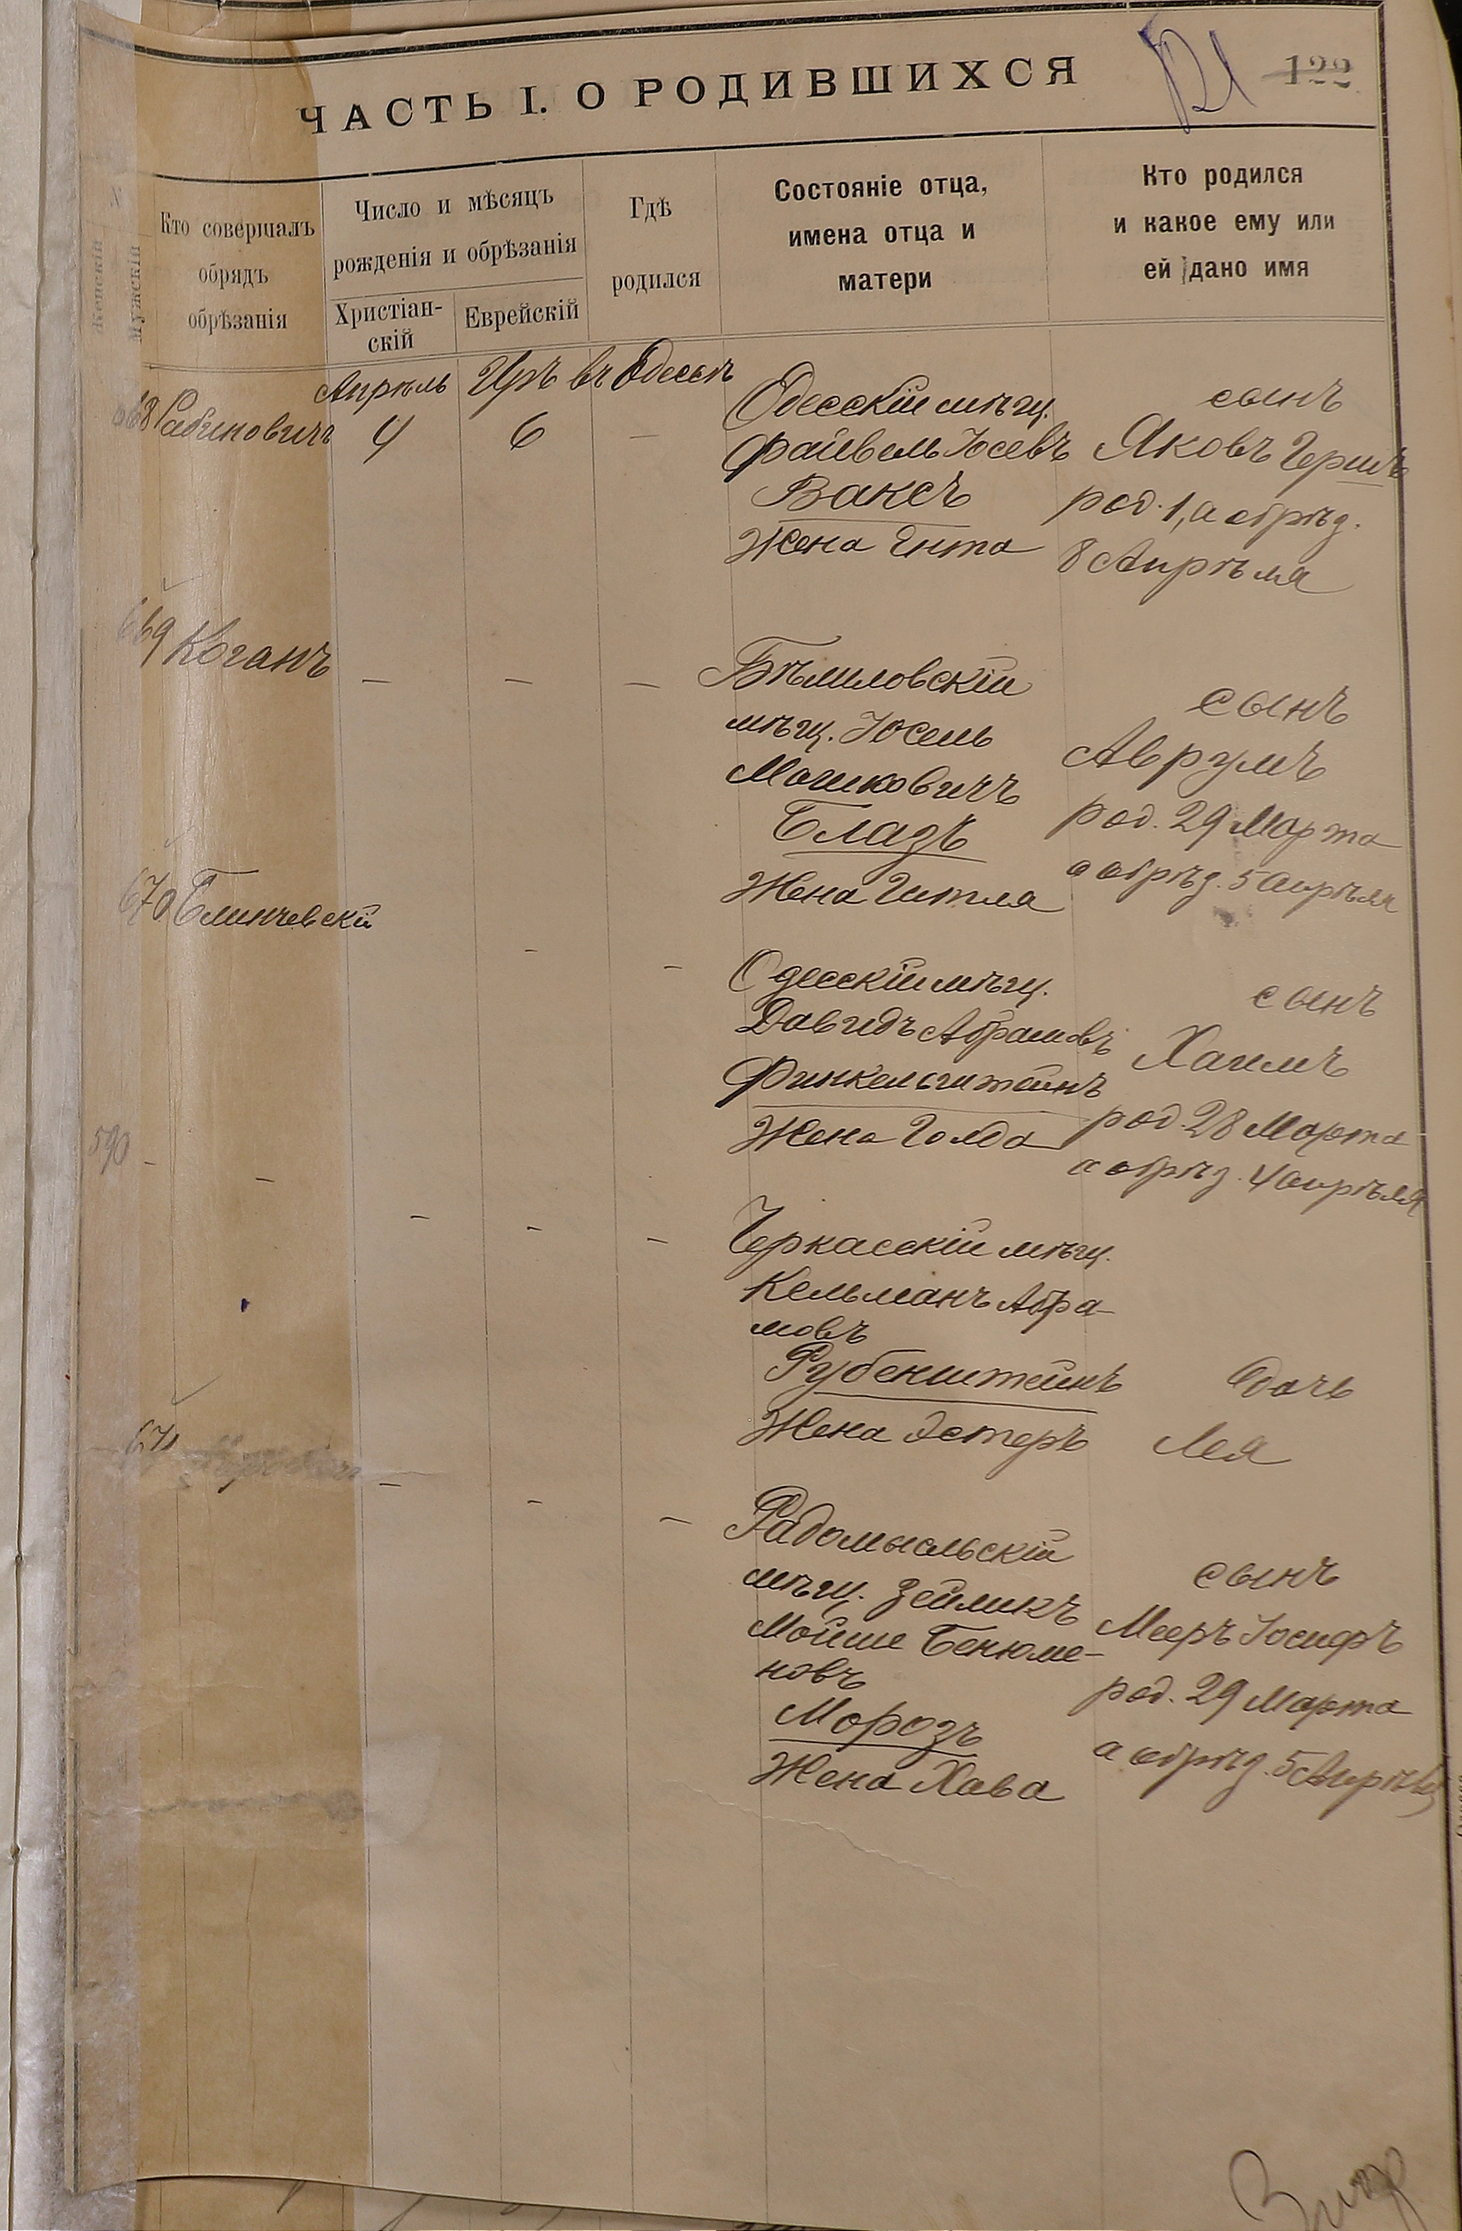 121
122
ЧАСТЬ I. О РОДИВШИХСЯ
№
Женскій
Мужскій
Кто совершалъ
обрядъ
обрѣзанія
Число и мѣсяцъ
рожденія и обрѣзанія
Христіан-
скій
Еврейскій
Гдѣ
родился
Состояніе отца,
имена отца и
матери
Кто родился
и какое ему или
ей дано имя
Апрель Иръ въ Одессѣ
668 Рабиновичъ 4 6 —
Одесскій мѣщ.
Файвель Іосевъ
Ваксъ
Жена Ента
сынъ
Яковъ Гершъ
род. 1, а обрѣз.
8 Апрѣля
669 Коганъ — — —
мѣщ. Іосель
Мошковичъ
Блазъ
Жена Гитля
сынъ
Аврумъ
род. 29 Марта
а обрѣз. 5 Апрѣля
670 Блинчевскій - -
Одесскій мѣщ.
Давидъ Абрамовъ
Финкельштейнъ
Жена Голда
сынъ
Хаимъ
род. 28 Марта
а обрѣз. 4 Апрѣля
590 - — - - -
Черкасскій мѣщ.
Кельманъ Абра-
мовъ
Рубенштейнъ
Жена Эстеръ
дочь
Лея
671 — - —
Радомысльскій
мѣщ. Зейликъ
Мойше Бенюме-
новъ
Морозъ
Жена Хава
сынъ
Мееръ Іосифъ
род. 29 Марта
а обрѣз. 5 Апрѣля